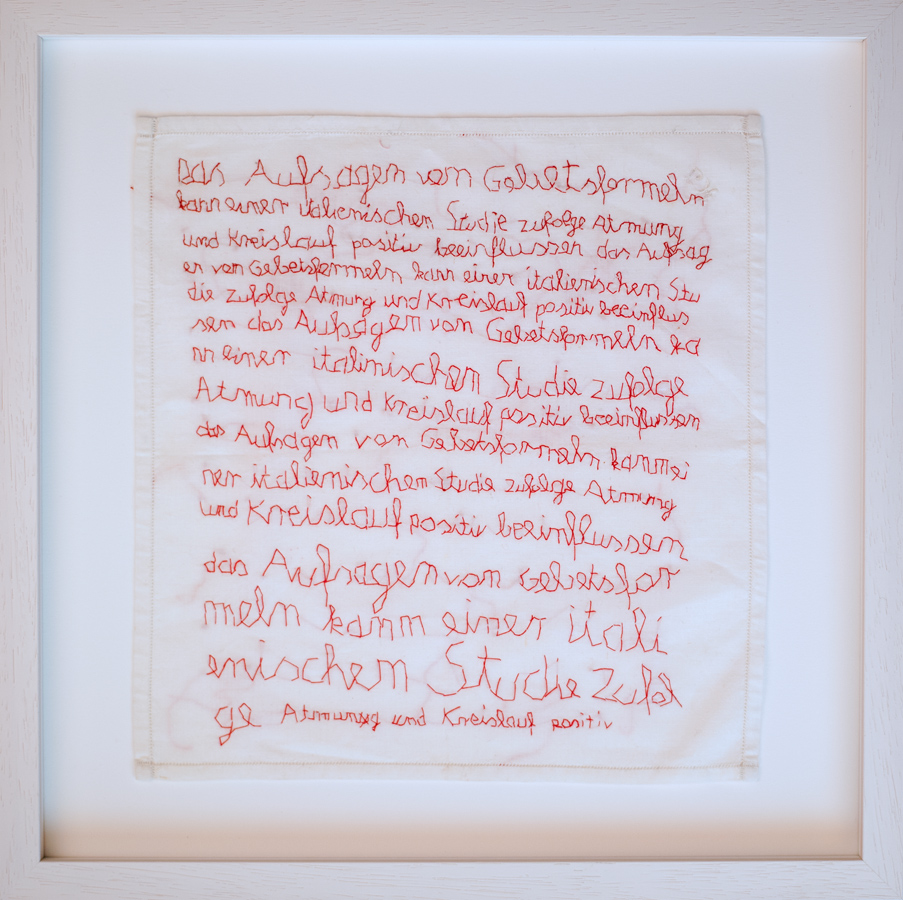 Das Aufsagen vom Gebetsformeln
kann einer italienischen Studie zufolge Atmung
und Kreislauf positiv beeinflussen das Aufsag
en von Gebetsformeln kann einer italienischen Stu
die zufolge Atmung und Kreislauf positiv beeinflus
sen das Aufsagen von Gebetsformeln ka
nn einer italinischen Studie zufolge
Atmung und Kreislauf positiv beeinflussen
das Aufsagen von Gebetsformeln kann ei
ner italienischen Studie zufolge Atmung
und Kreislauf positiv beeinflussen
das Aufsagen von Gebetsfor
meln kann einer itali
enischen Studie zufol
ge Atmung und Kreislauf positiv